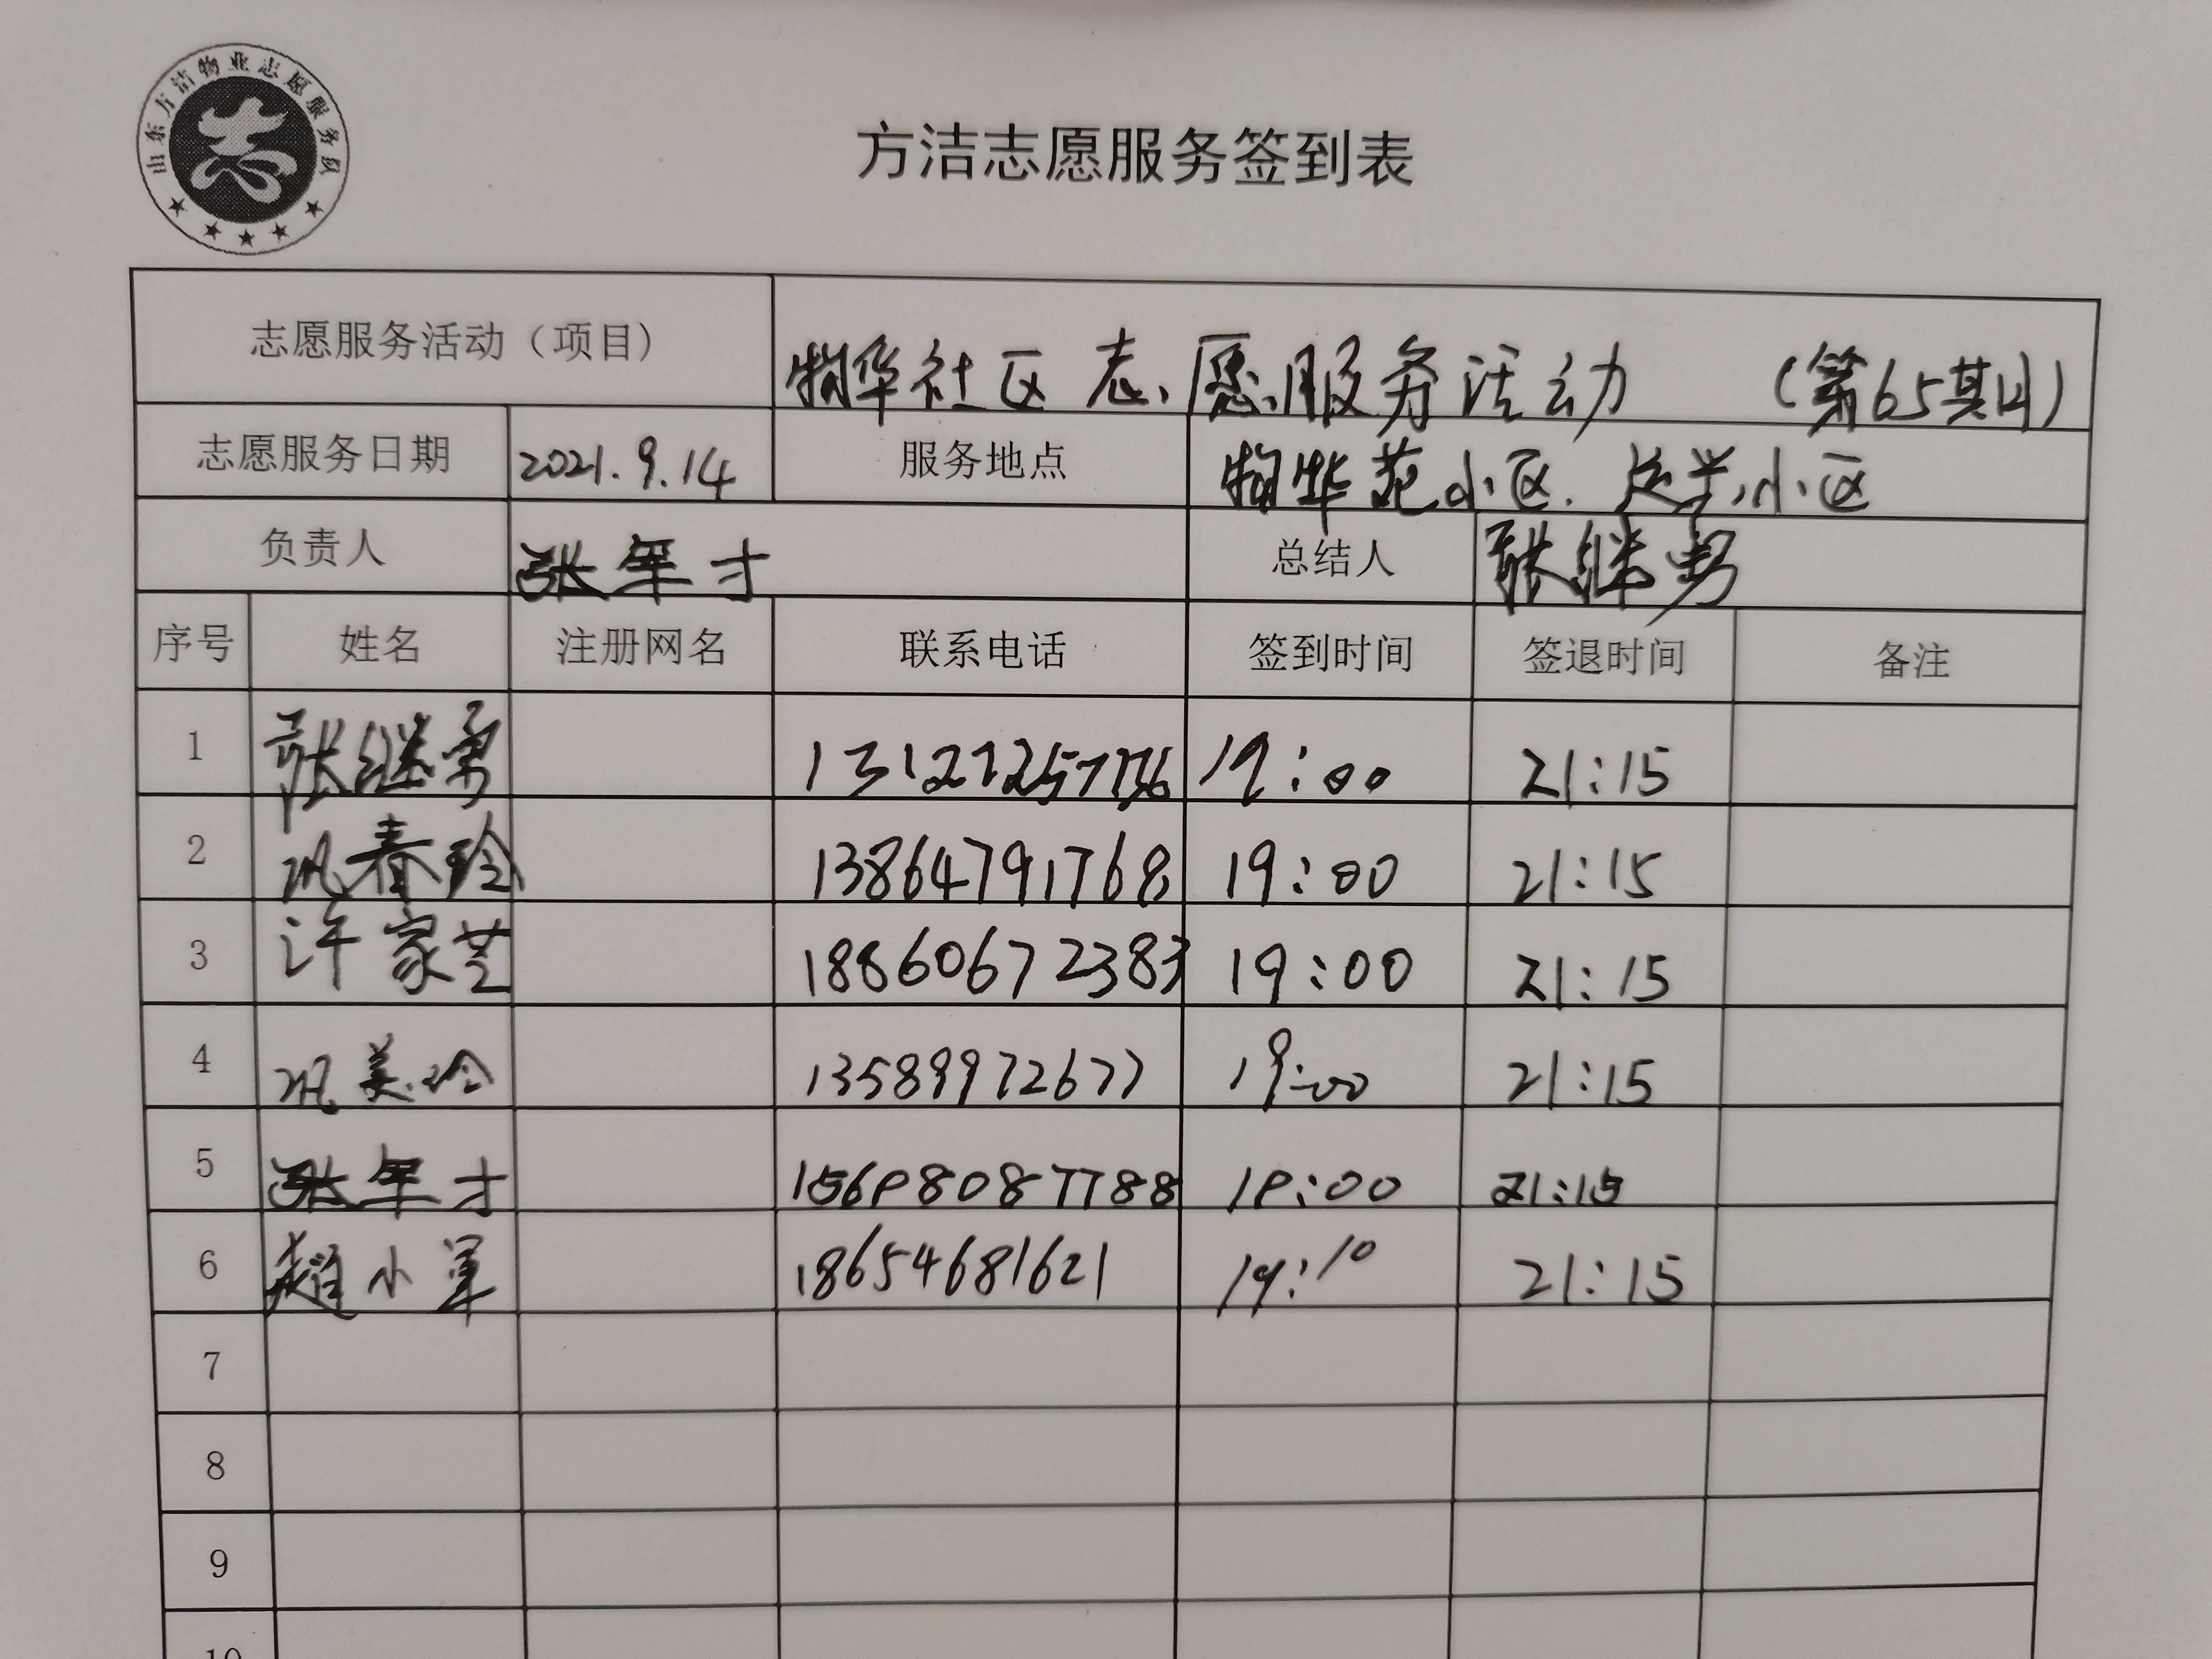 山东方洁物业志愿服务队
方洁志愿服务签到表
志愿服务活动（项目） 物华社区志愿服务活动 （第65期）
志愿服务日期 2021.9.14 服务地点 物华苑小区. 小区
负责人 张军才 总结人 张继勇
序号 姓名 注册网名 联系电话 签到时间 签退时间 备注
1 张继勇 19:00 21:15
2 巩春玲 13864791768 19:00 21:15
3 许家芝 18860672383 19:00 21:15
4 巩美玲 13589972677 19:00 21:15
5 张军才 21:15
6 赵小军 18654681621 19:10 21:15
7
8
9
10